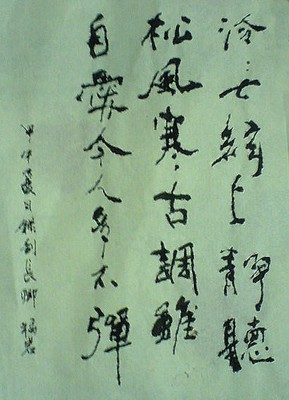 泠々七絃上靜聽
松風寒古調雖
自愛今人多不彈
甲午夏月錄劉長卿